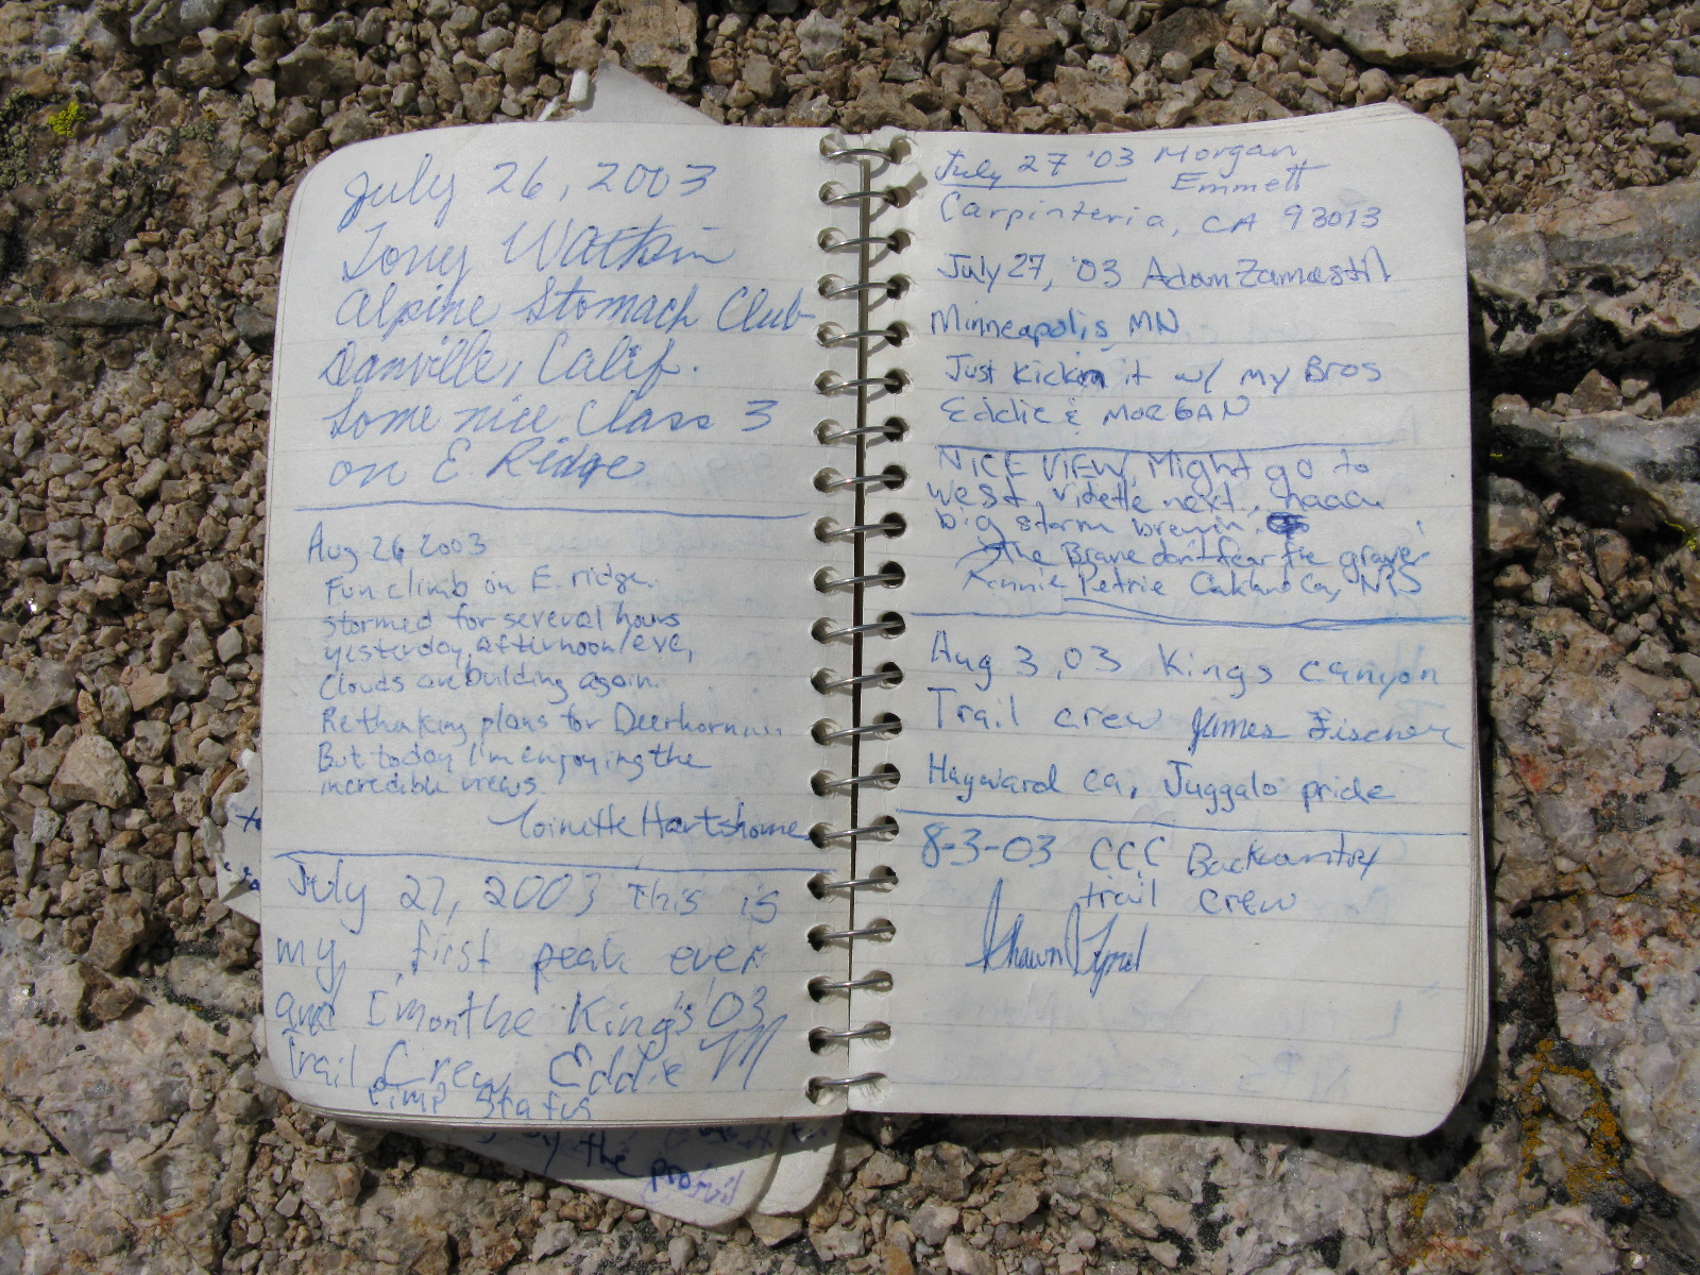 July 26, 2003
Tony Watkin
Alpine Stomach Club
Danville, Calif.
Some nice Class 3
on E. Ridge
Aug 26 2003
Fun climb on E. ridge.
stormed for several hours
yesterday, afternoon/eve,
Clouds are building again.
Rethinking plans for Deerhorn
But today I'm enjoying the
incredible views
Toinette Hartshorne
July 27, 2003 This is
my first peak ever
and I'm on the King's '03
Trail Crew Eddie M
Pimp Status
the
July 27 '03 Morgan
Emmett
Carpinteria, CA 93013
July 27, '03 Adam Zamastil
Minneapolis, MN
Just Kickin it w/ my Bros
Eddie & MORGAN
NICE VIEW, Might go to
west vidette next,
big storm brewin.
The Brave don't fear the grave!
Petrie Oakland Ca,
Aug 3, 03 Kings canyon
Trail crew James Fischer
Hayward ca, Juggalo pride
8-3-03 CCC Backcountry
trail crew
Shawn